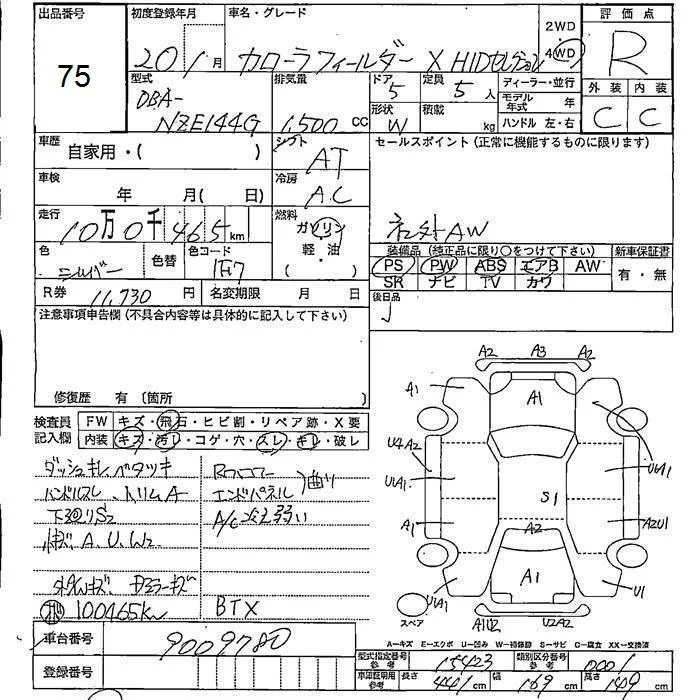 出品番号
75
初度登録年月
20 1 月
車名・グレード
カローラフィールダー X HIDセレクション
2WD
4WD
評価点
R
外装 内装
C C
型式
DBA-
NZE144G
排気量
1,500 CC
ドア
5
定員
5 人
ディーラー・並行
形状
W
積載
kg
モデル年式 年
ハンドル 左・右
車歴
自家用・( )
シフト
AT
セールスポイント(正常に機能するものに限ります)
社外AW
車検
年 月( 日)
冷房
A.C
走行
10万0千465km
燃料
ガソリン
軽・油
( )
色
シルバー
色替
色コード
1F7
装備品(純正品に限り○をつけて下さい)
新車保証書
PS PW ABS エアB AW
SR ナビ TV カワ
有・無
R券 11,730 円
名変期限 月 日
後日品
注意事項申告欄(不具合内容等は具体的に記入して下さい)
修復歴 有〔箇所 〕
検査員記入欄
FW キズ・飛石・ヒビ割・リペア跡・X要
内装 キズ・汚レ・コゲ・穴・スレ・キレ・破レ
ダッシュキレ ベタツキ
ハンドルスレ、トリムA
下廻りS2
キズ、A、U、W2
Rフロアー
エンドパネル
曲り
A/C冷え弱い
ホイルキズ ドアミラーキズ
100465km
BTX
A2 A3 A2
A1
A1
U4A2
U1A1
U1A1
S1
A1
A2U1
A2
A1
U1A1
U1
A1U2 U2A2
スペア
A-キズ E-エクボ U-凹み W-補修跡 S-サビ C-腐食 XX-交換済
車台番号
9009780
登録番号
型式指定番号 参考 15423
類別区分番号 参考 0001
車認証明用 参考
長さ 441 cm
幅 169 cm
高さ 149 cm